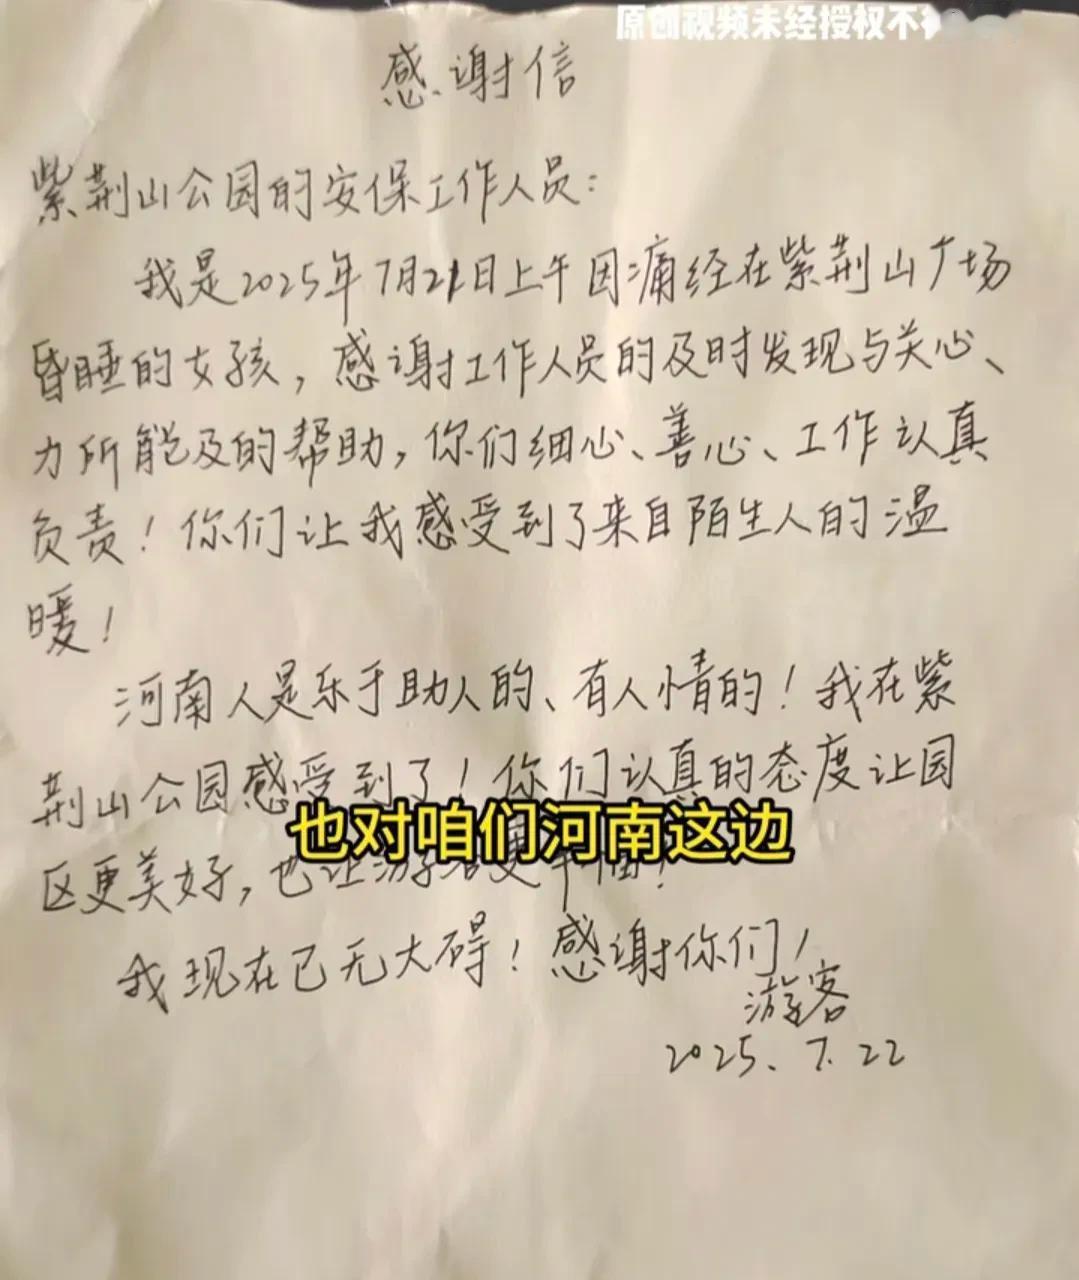 原创视频未经授权不
感谢信
紫荆山公园的安保工作人员：
我是2025年7月21日上午因痛经在紫荆山广场
昏睡的女孩，感谢工作人员的及时发现与关心、
力所能及的帮助，你们细心、善心、工作认真
负责！你们让我感受到了来自陌生人的温
暖！
河南人是乐于助人的、有人情的！我在紫
荆山公园感受到了！你们认真的态度让园
也对咱们河南这边
区更美好，也让游客更！
我现在已无大碍！感谢你们！
游客
2025.7.22